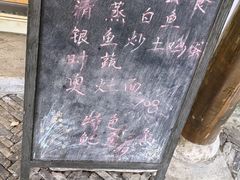 清蒸白鱼
银鱼炒土鸡蛋
时蔬
奥灶面
特色